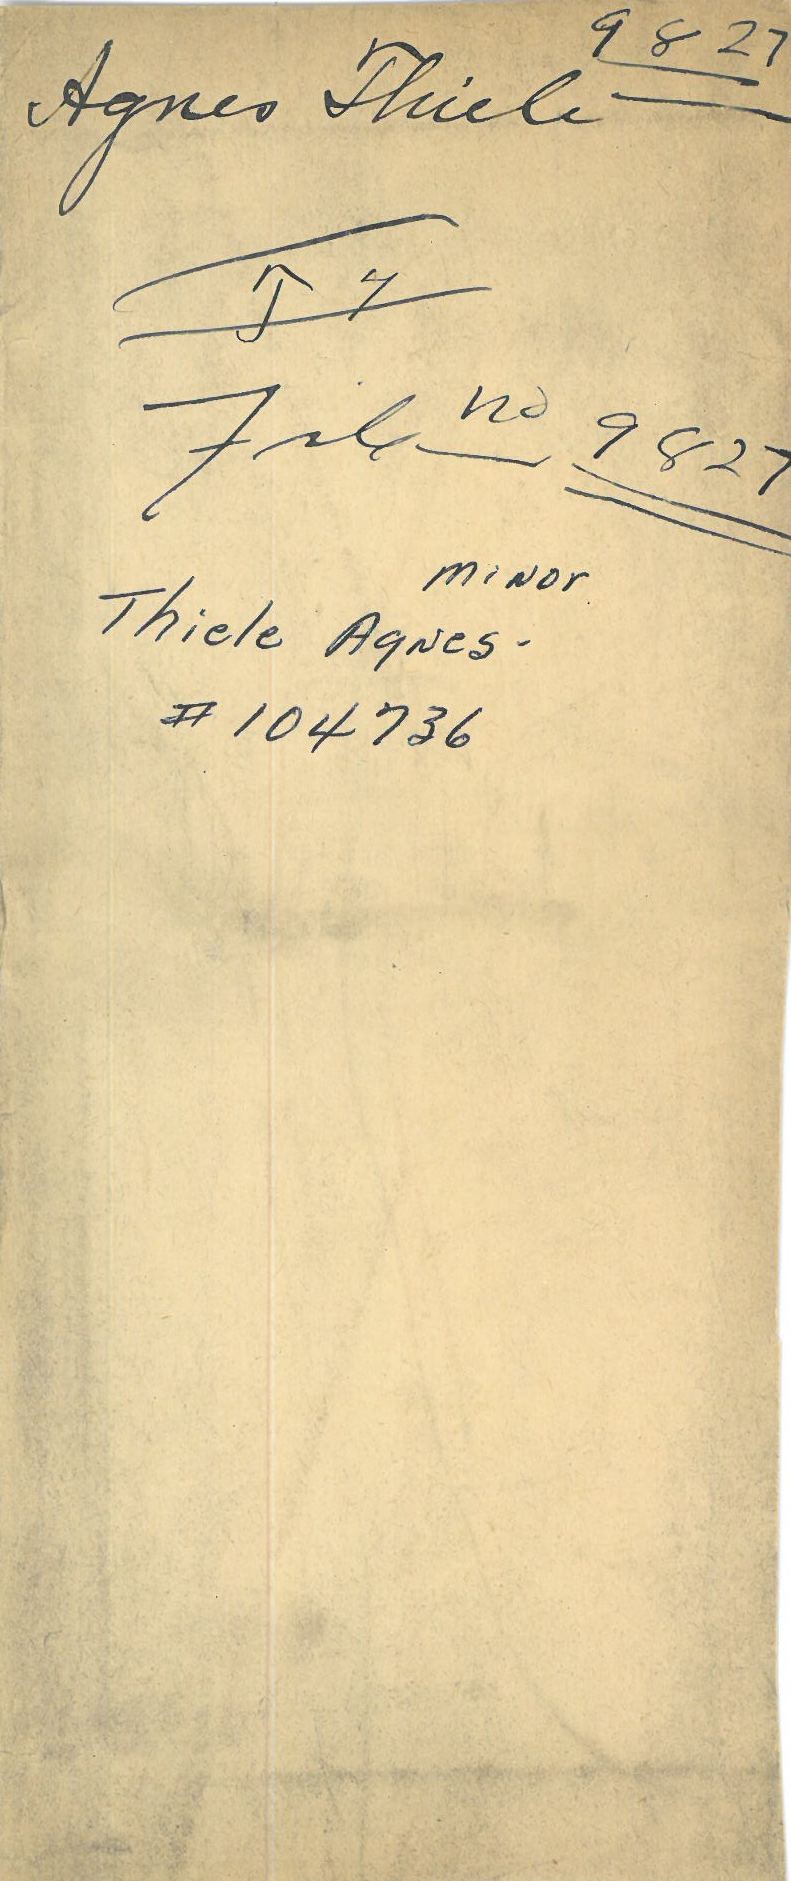 9827
Agnes Thiele
J 7
File no 9827
minor
Thiele Agnes-
#104736